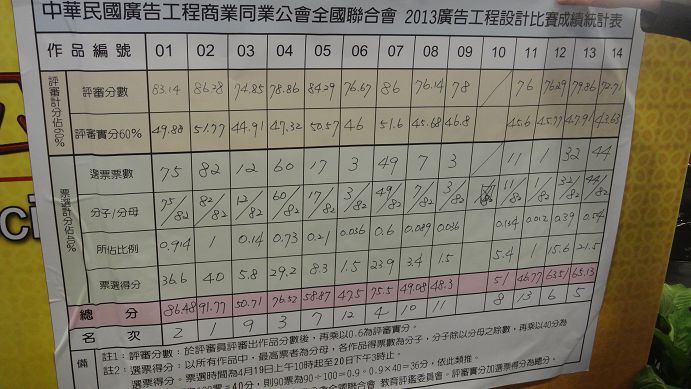 中華民國廣告工程商業同業公會全國聯合會 2013廣告工程設計比賽成績統計表
作品編號 01 02 03 04 05 06 07 08 09 10 11 12 13 14
評審計分佔60%
評審分數 83.14 86.28 74.85 78.86 84.29 76.67 86 76.14 78 76 76.29 79.86 72.71
評審實分60% 49.88 51.77 44.91 47.32 50.57 46 51.6 45.68 46.8 45.6 45.77 47.91 43.63
票選計分佔40%
選票票數 75 82 12 60 17 3 49 7 3 11 1 32 44
分子/分母 75/82 82/82 12/82 60/82 17/82 3/82 49/82 7/82 3/82 11/82 1/82 32/82 44/82
所佔比例 0.914 1 0.14 0.73 0.21 0.036 0.6 0.089 0.036 0.134 0.012 0.39 0.54
票選得分 36.6 40 5.8 29.2 8.3 1.5 23.9 3.4 1.5 5.4 1 15.6 21.5
總分 86.48 91.77 50.71 76.52 58.87 47.5 75.5 49.08 48.3 51 46.77 63.51 65.13
名次 2 1 9 3 7 12 4 10 11 8 13 6 5
備 註1：評審分數：於評審員評審出作品分數後，再乘以0.6為評審實分。
註2：選票得分：以所有作品中，最高票者為分母，各作品得票數為分子，分子除以分母之除數，再乘以40分為
選票得分。票選時間為4月19日上午10時起至20日下午3時止。
=40分，則90票為90÷100=0.9。0.9×40=36分，依此類推。
全國聯合會 教育評鑑委員會。評審實分加選票得分為總分。
ci